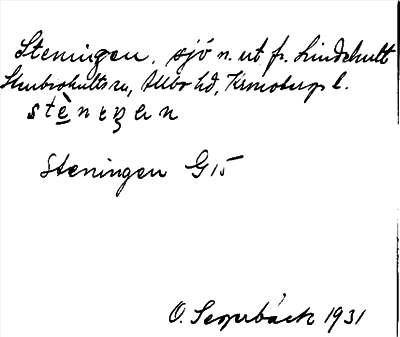 Steningen, sjö n. ut fr. Lindehult
Stenbrohults sn, Allbo hd, Kronobergs l.
stènɩŋən
Steningen G 15
O. Segerbäck 1931